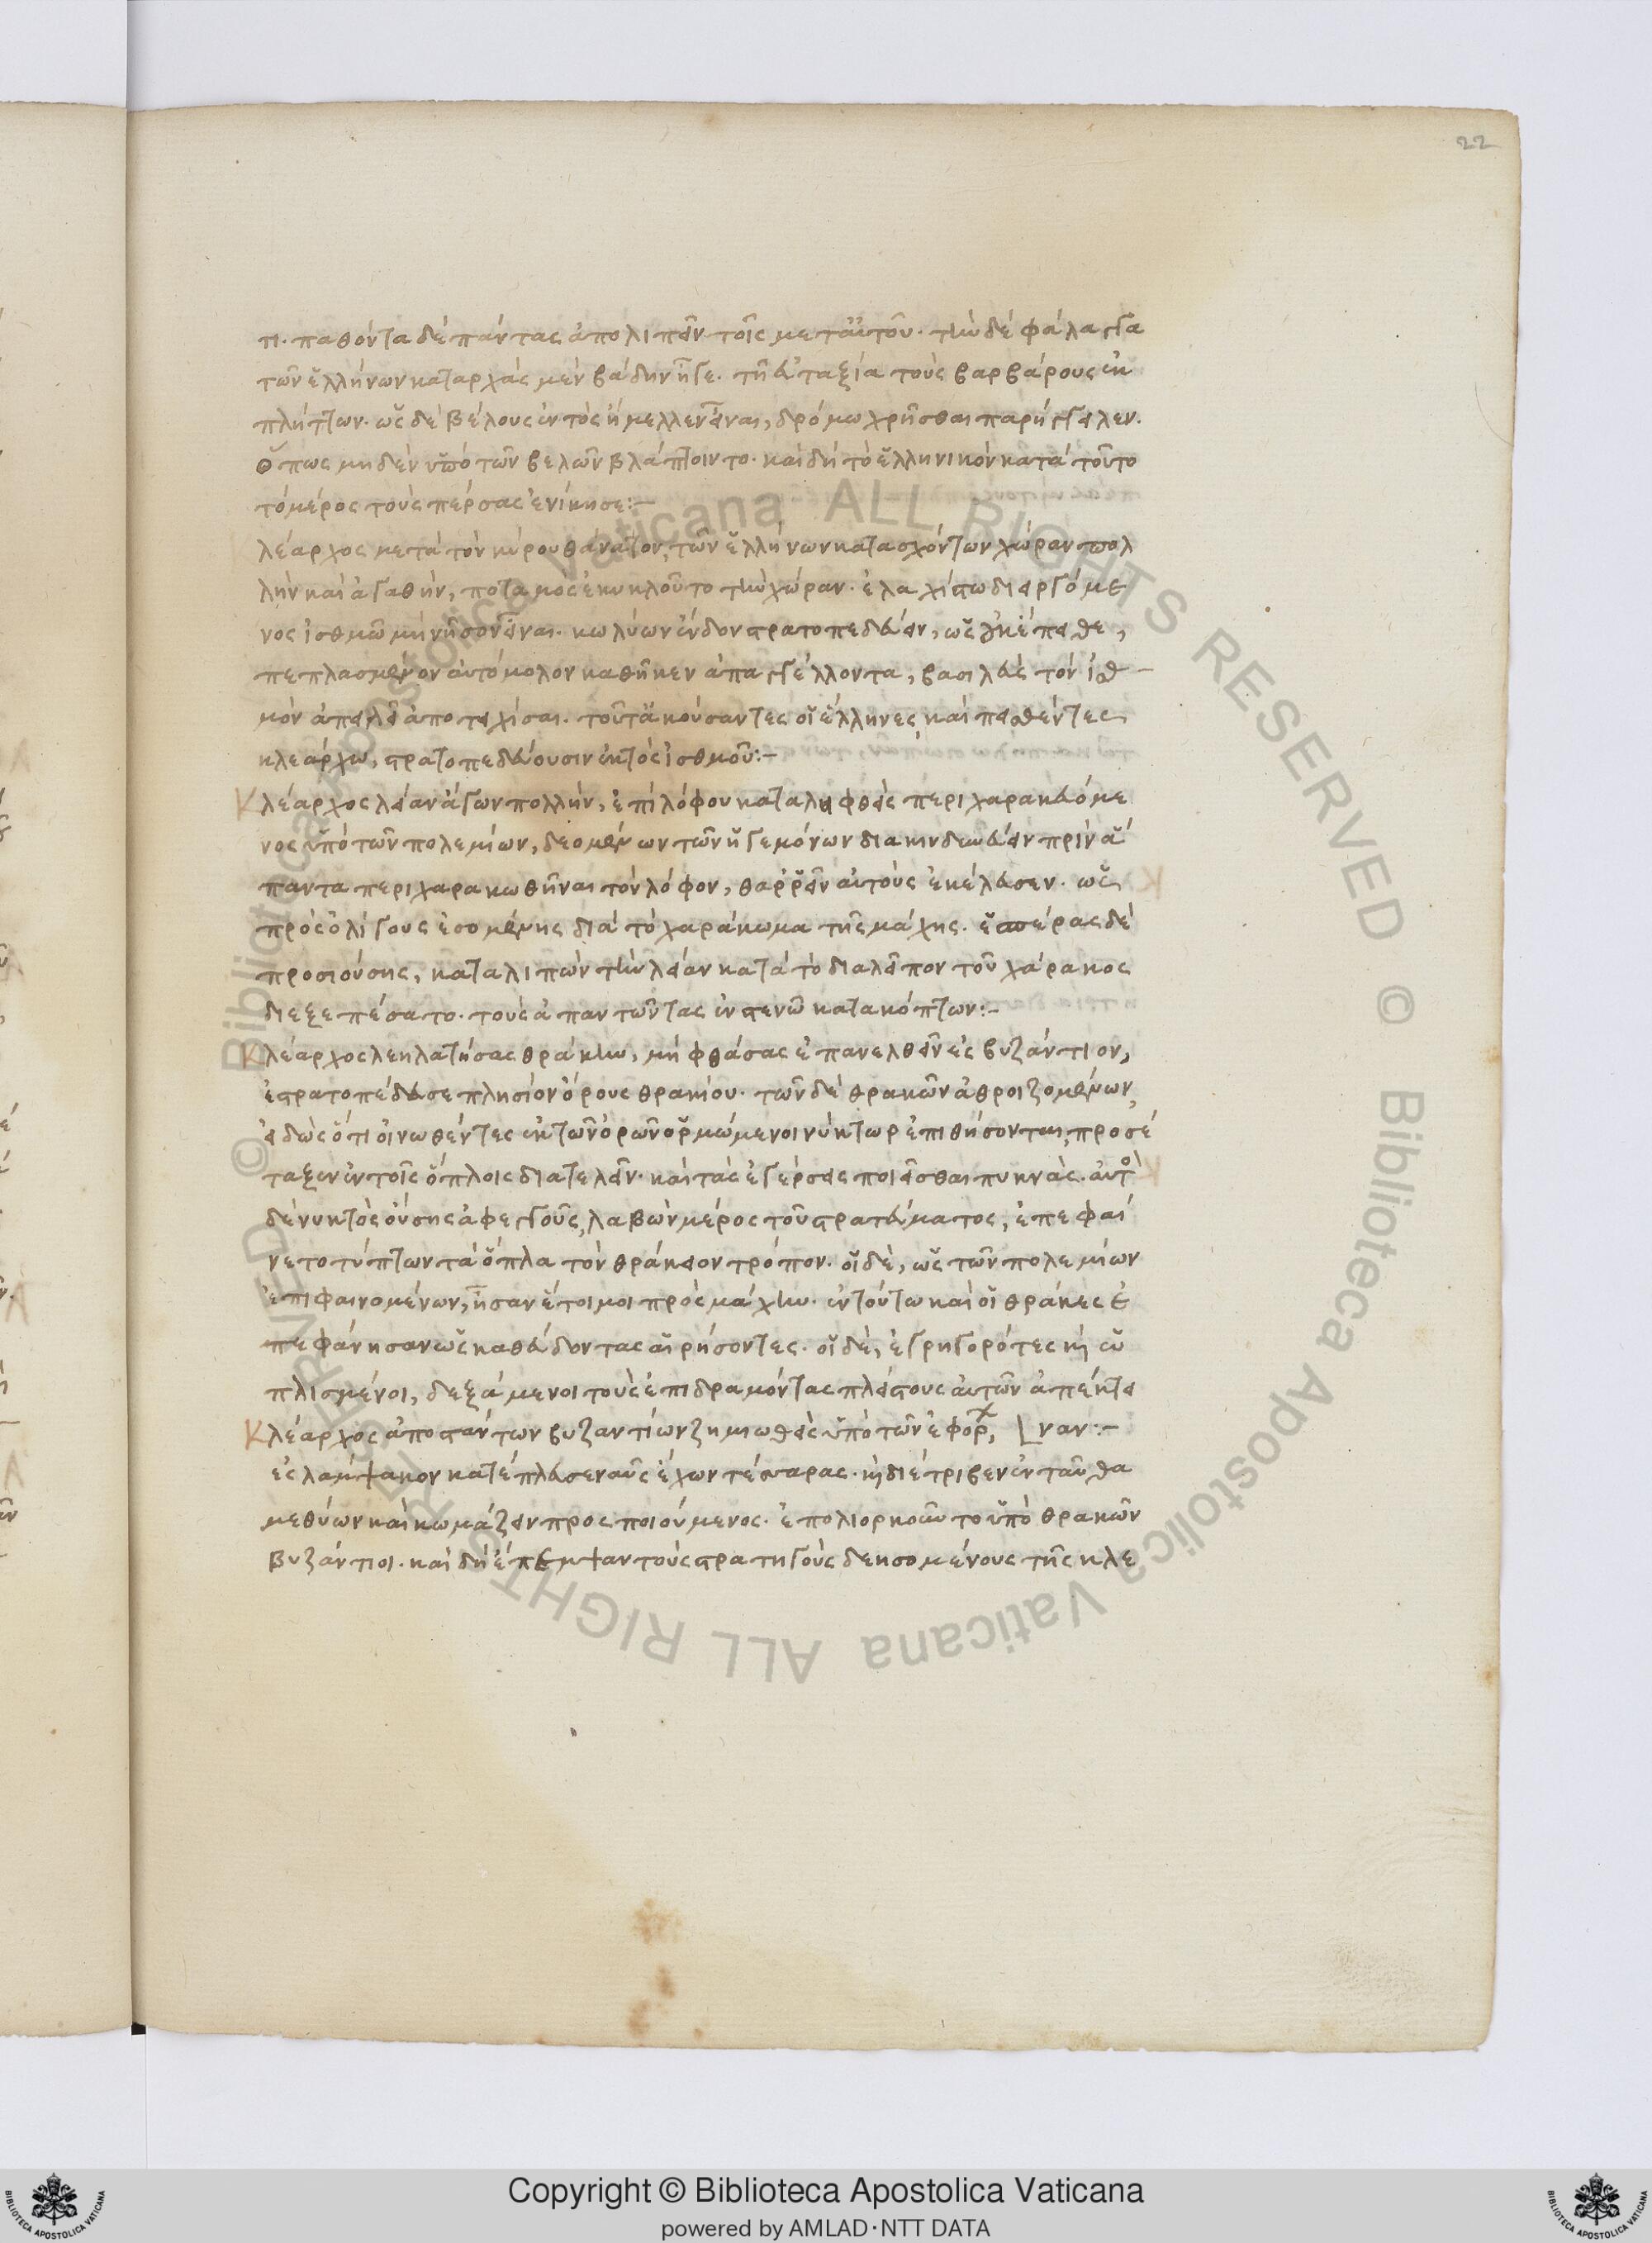 22
τι. παθόντα δὲ πάντας ἀπολιπεῖν τοῖς μετ' αὐτοῦ. τὴν δὲ φάλαγγα
τῶν ἑλλήνων καταρχὰς μὲν βάδην ἦγε. τῆ εὐταξία τοὺς βαρβάρους ἐκ
πλήττων. ὡς δὲ βέλους ἐντὸς ἤμελλεν εἶναι, δρόμω χρῆσθαι παρήγγειλεν.
ὅπως μηδὲν ὑπὸ τῶν βελῶν βλάπτοιντο. καὶ δὴ τὸ ἑλληνικὸν κατὰ τοῦτο
τὸ μέρος τοὺς πέρσας ἐνίκησε:-
λέαρχος μετὰ τὸν κύρου θάνατον, τῶν ἑλλήνων κατασχόντων χώραν πολ
λὴν καὶ ἀγαθὴν, ποταμὸς ἐκυκλοῦτο τὴν χώραν. ἐλαχίστω διειργόμε
νος ἰσθμῶ μὴ νῆσον εἶναι. κωλύων ἔνδον στρατοπεδεύειν, ὡς οὐκ ἔπειθε,
πεπλασμένον αὐτόμολον καθῆκεν ἀπαγγέλλοντα, βασιλεὺς τὸν ἰσθ
μὸν ἀπειλεῖ ἀποτειχίσαι. τοῦτ' ἀκούσαντες οἱ ἕλληνες καὶ πεισθέντες
κλεάρχω, στρατοπεδεύουσιν ἐκτὸς ἰσθμοῦ:-
Κλέαρχος λείαν ἄγων πολλὴν, ἐπὶ λόφου καταληφθεὶς περιχαρακευόμε
νος ὑπὸ τῶν πολεμίων, δεομένων τῶν ἡγεμόνων διακινδυνεύειν πρὶν ἅ
παντα περιχαρακωθῆναι τὸν λόφον, θαῤῥεῖν αὐτοὺς ἐκέλευσεν. ὡς
πρὸς ὀλίγους ἐσομένης διὰ τὸ χαράκωμα τῆς μάχης. ἑσπέρας δὲ
προσιούσης, καταλιπὼν τὴν λείαν κατὰ τὸ διαλεῖπον τοῦ χάρακος
διεξεπέσατο. τοὺς ἀπαντῶντας ἐν στενῶ κατακόπτων:-
Κλέαρχος λεηλατήσας θράκην, μὴ φθάσας ἐπανελθεῖν ἐς βυζάντιον,
ἐστρατοπέδευσε πλησίον ὄρους θρακίου. τῶν δὲ θρακῶν ἀθροιζομένων,
εἰδὼς ὅτι οἰνωθέντες ἐκ τῶν ὀρῶν ὁρμώμενοι νύκτωρ ἐπιθήσονται, προσέ
ταξεν ἐν τοῖς ὅπλοις διατελεῖν. καὶ τὰς ἐγέρσεις ποιεῖσθαι πυκνὰς. αὐτὸ
δὲ νυκτὸς οὔσης ἀφεγγοῦς, λαβὼν μέρος τοῦ στρατεύματος, ἐπεφαί
νετο τύπτων τὰ ὅπλα τὸν θράκειον τρόπον. οἱ δὲ, ὡς τῶν πολεμίων
ἐπιφαινομένων, ἦσαν ἕτοιμοι πρὸς μάχην. ἐν τούτω καὶ οἱ θράκες ἐ
πεφάνησαν ὡς καθεύδοντας αἱρήσοντες. οἱ δὲ, ἐγρηγορότες καὶ ὡ
πλισμένοι, δεξάμενοι τοὺς ἐπιδραμόντας πλείστους αὐτῶν ἀπέκτει
Κλέαρχος ἀποστάντων βυζαντίων ζημιωθεὶς ὑπὸ τῶν ἐφόρ, [ναν:-
ἐς λαμψακον κατέπλευσε ναῦς ἔχων τέσσαρας. καὶ διέτριβεν ἐνταῦθα
μεθύων καὶ κωμάζειν προσποιούμενος. ἐπολιορκοῦντο ὑπὸ θρακῶν
βυζάντιοι. καὶ δὴ ἔπεμψαν τοὺς στρατηγοὺς δεησομένους τῆς κλε
Copyright © Biblioteca Apostolica Vaticana
powered by AMLAD·NTT DATA
© Biblioteca Apostolica Vaticana ALL RIGHTS RESERVED © Biblioteca Apostolica Vaticana ALL RIGHTS RESERVED
BIBLIOTECA APOSTOLICA VATICANA
BIBLIOTECA APOSTOLICA VATICANA